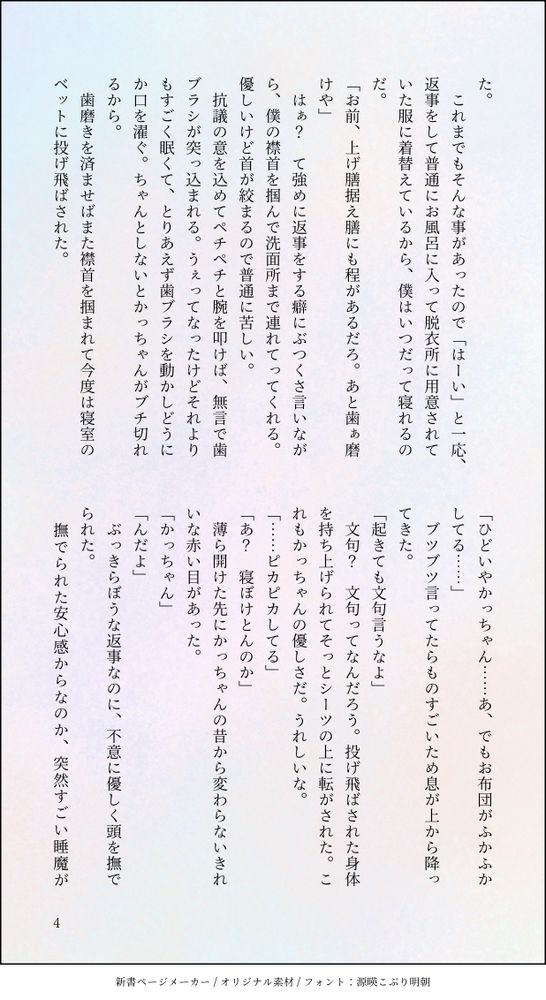 た。
　これまでもそんな事があったので「はーい」と一応、
返事をして普通にお風呂に入って脱衣所に用意されて
いた服に着替えているから、僕はいつだって寝れるの
だ。
「お前、上げ膳据え膳にも程があるだろ。あと歯ぁ磨
けや」
　はぁ？　て強めに返事をする癖にぶつくさ言いなが
ら、僕の襟首を掴んで洗面所まで連れてってくれる。
優しいけど首が絞まるので普通に苦しい。
　抗議の意を込めてペチペチと腕を叩けば、無言で歯
ブラシが突っ込まれる。うぇってなったけどそれより
もすごく眠くて、とりあえず歯ブラシを動かしどうに
か口を濯ぐ。ちゃんとしないとかっちゃんがブチ切れ
るから。
　歯磨きを済ませばまた襟首を掴まれて今度は寝室の
ベットに投げ飛ばされた。
「ひどいやかっちゃん……あ、でもお布団がふかふか
してる……」
　ブツブツ言ってたらものすごいため息が上から降っ
てきた。
「起きても文句言うなよ」
　文句？　文句ってなんだろう。投げ飛ばされた身体
を持ち上げられてそっとシーツの上に転がされた。こ
れもかっちゃんの優しさだ。うれしいな。
「……ピカピカしてる」
「あ？　寝ぼけとんのか」
　薄ら開けた先にかっちゃんの昔から変わらないきれ
いな赤い目があった。
「かっちゃん」
「んだよ」
　ぶっきらぼうな返事なのに、不意に優しく頭を撫で
られた。
　撫でられた安心感からなのか、突然すごい睡魔が
4
新書ページメーカー / オリジナル素材 / フォント：源暎こぶり明朝